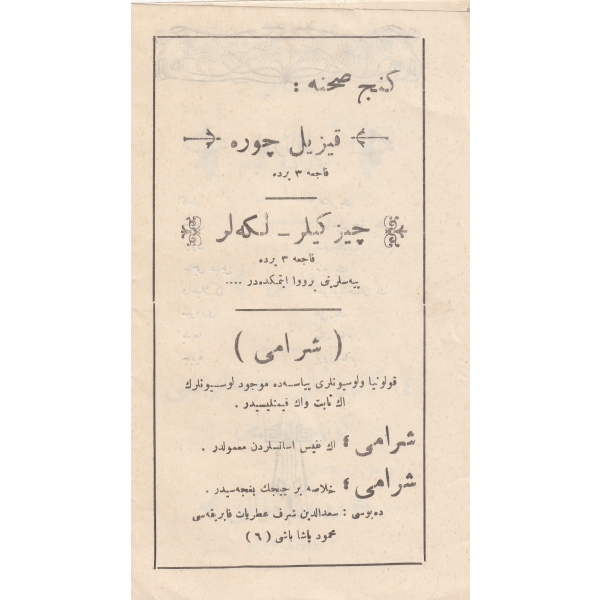 كنج صحنه :
قيزيل چوره
فاجعه ٣ پرده
چيزكيلر ـ لكه لر
فاجعه ٣ پرده
پيه سلرينى پرووا ايتمكده در ....
( شرامى )
قولونيا ولوسيونلرى پياسه ده موجود لوسيونلرك
اك ثابت واك قيمتليسيدر .
شرامى ؛ اك نفيس اسانسلردن معمولدر .
شرامى ؛ خلاصه بر چيچك بغچه سيدر .
ده پوسى : سعدالدين شرف عطريات فابريقه سى
محمود پاشا باشى ( ٦ )